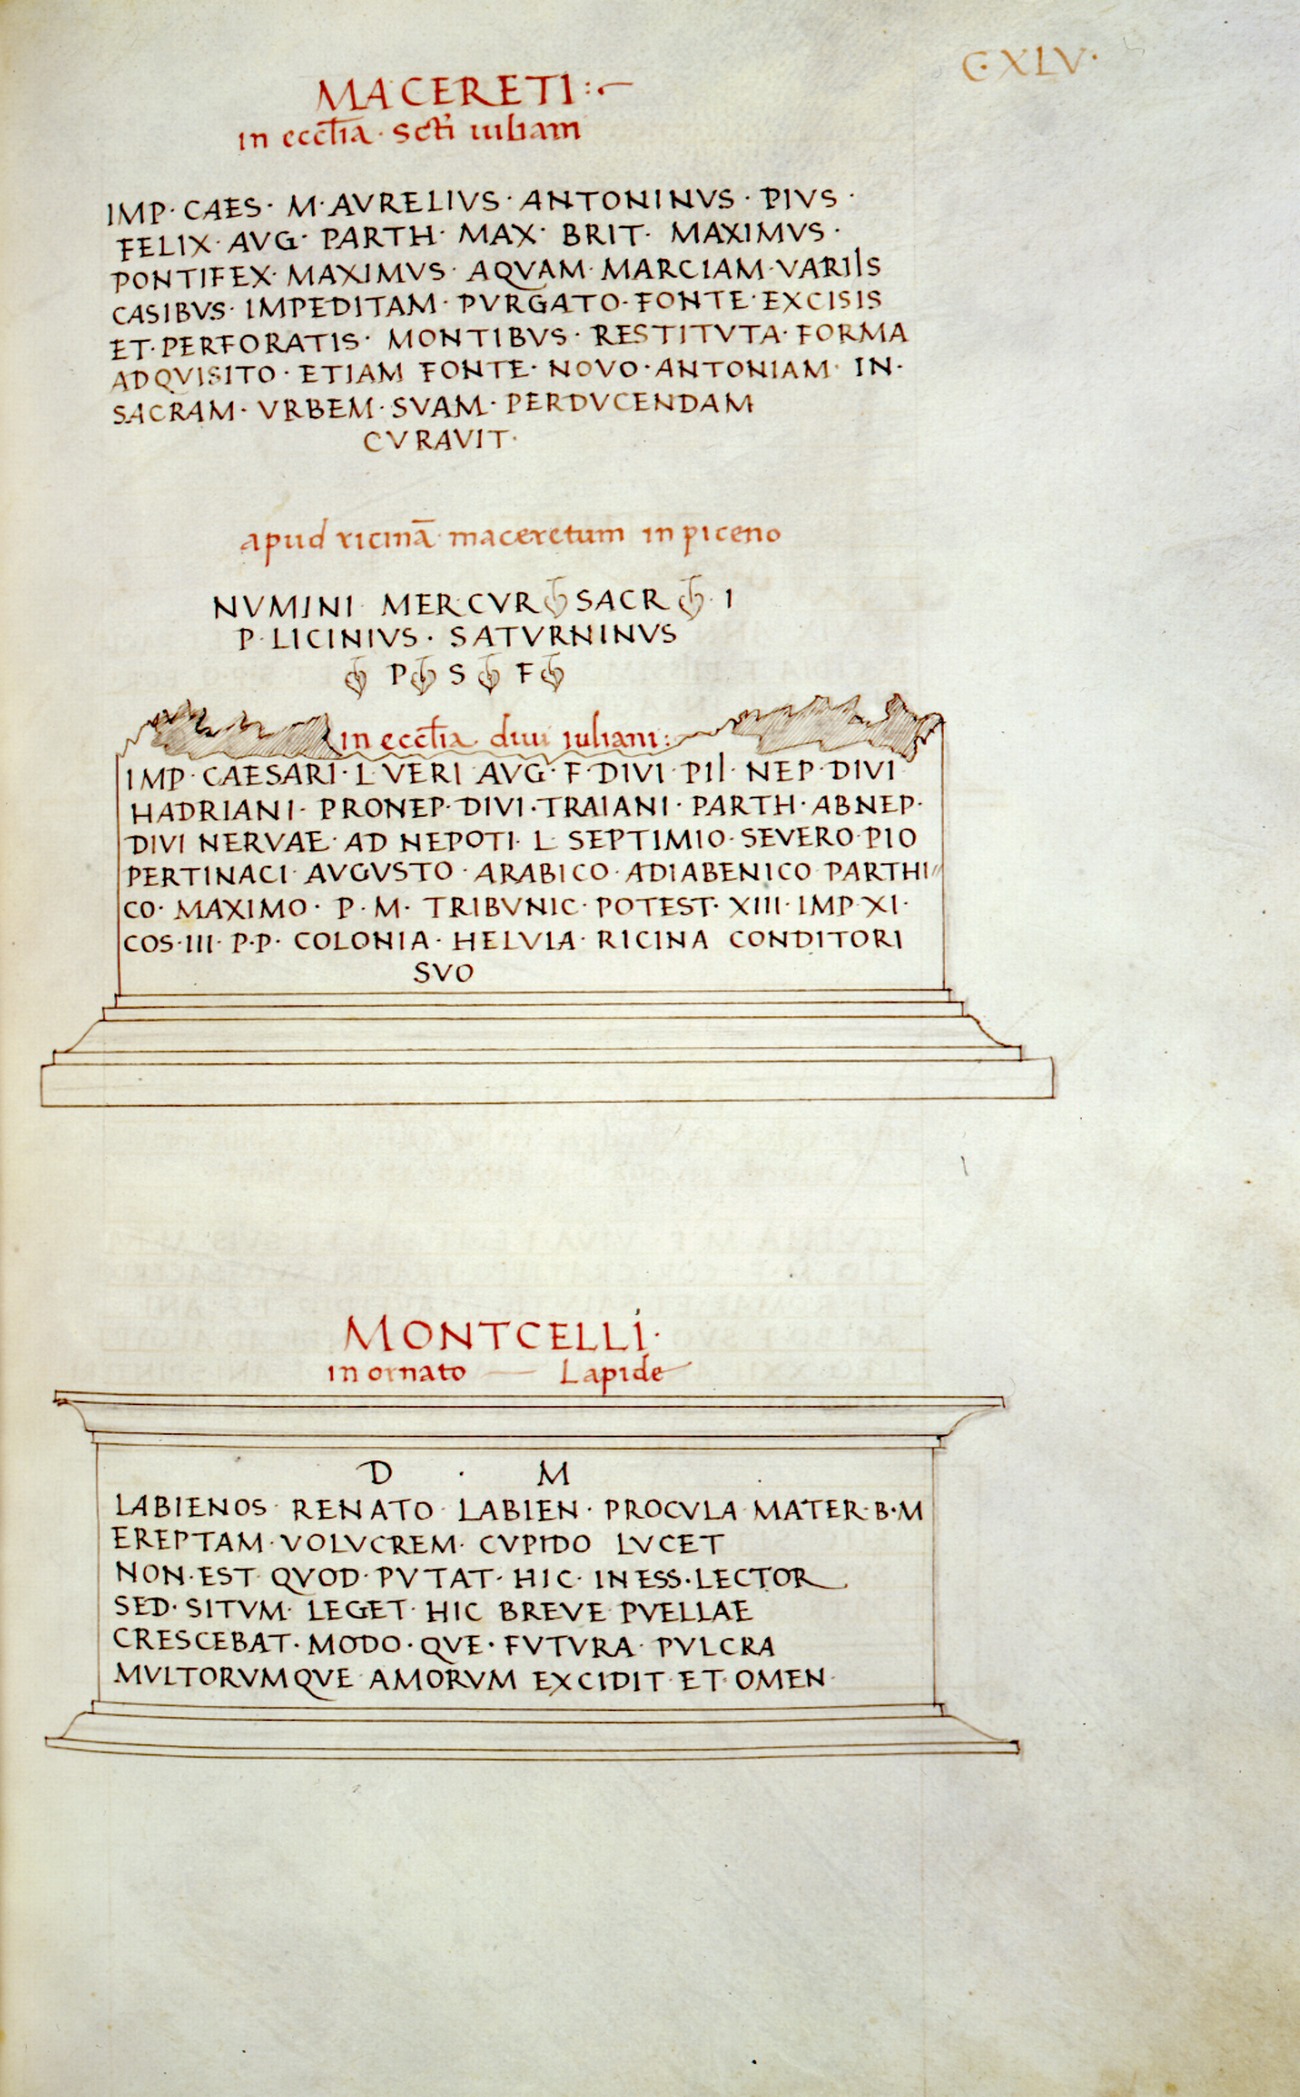 C·XLV·
MACERETI:·
in eccl̄ia · scti iuliani
IMP· CAES· M·AVRELIVS·ANTONINVS·PIVS·
FELIX·AVG·PARTH·MAX·BRIT·MAXIMVS·
PONTIFEX·MAXIMVS·AQVAM·MARCIAM·VARIIS
CASIBVS·IMPEDITAM·PVRGATO·FONTE·EXCISIS
ET·PERFORATIS·MONTIBVS·RESTITVTA·FORMA
ADQVISITO·ETIAM FONTE·NOVO·ANTONIAM·IN·
SACRAM·VRBEM·SVAM·PERDVCENDAM
CVRAVIT·
apud ricinā maceretum in piceno
NVMINI MERCVR❦SACR❦·I
P·LICINIVS·SATVRNINVS
❦ P❦S❦F❦
in eccl̄ia divi iuliani:
IMP·CAESARI·L·VERI AVG·F·DIVI·PII·NEP·DIVI
HADRIANI·PRONEP·DIVI·TRAIANI·PARTH·ABNEP·
DIVI NERVAE·AD NEPOTI·L·SEPTIMIO·SEVERO·PIO
PERTINACI·AVGVSTO·ARABICO·ADIABENICO PARTHI//
CO·MAXIMO·P·M·TRIBVNIC·POTEST·XIII·IMP·XI·
COS·III·P·P·COLONIA·HELVIA·RICINA CONDITORI
SVO
MONTCELLI·
in ornato — Lapide
D · M
LABIENOS RENATO LABIEN·PROCVLA MATER·B·M
EREPTAM·VOLVCREM·CVPIDO LVCET
NON·EST QVOD·PVTAT·HIC·INESS·LECTOR
SED·SITVM·LEGET·HIC BREVE PVELLAE
CRESCEBAT·MODO·QVE·FVTVRA·PVLCRA
MVLTORVMQVE AMORVM EXCIDIT·ET·OMEN·